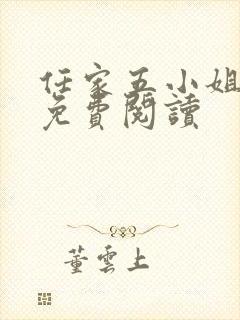 任家五小姐
免費閱讀
董雲上